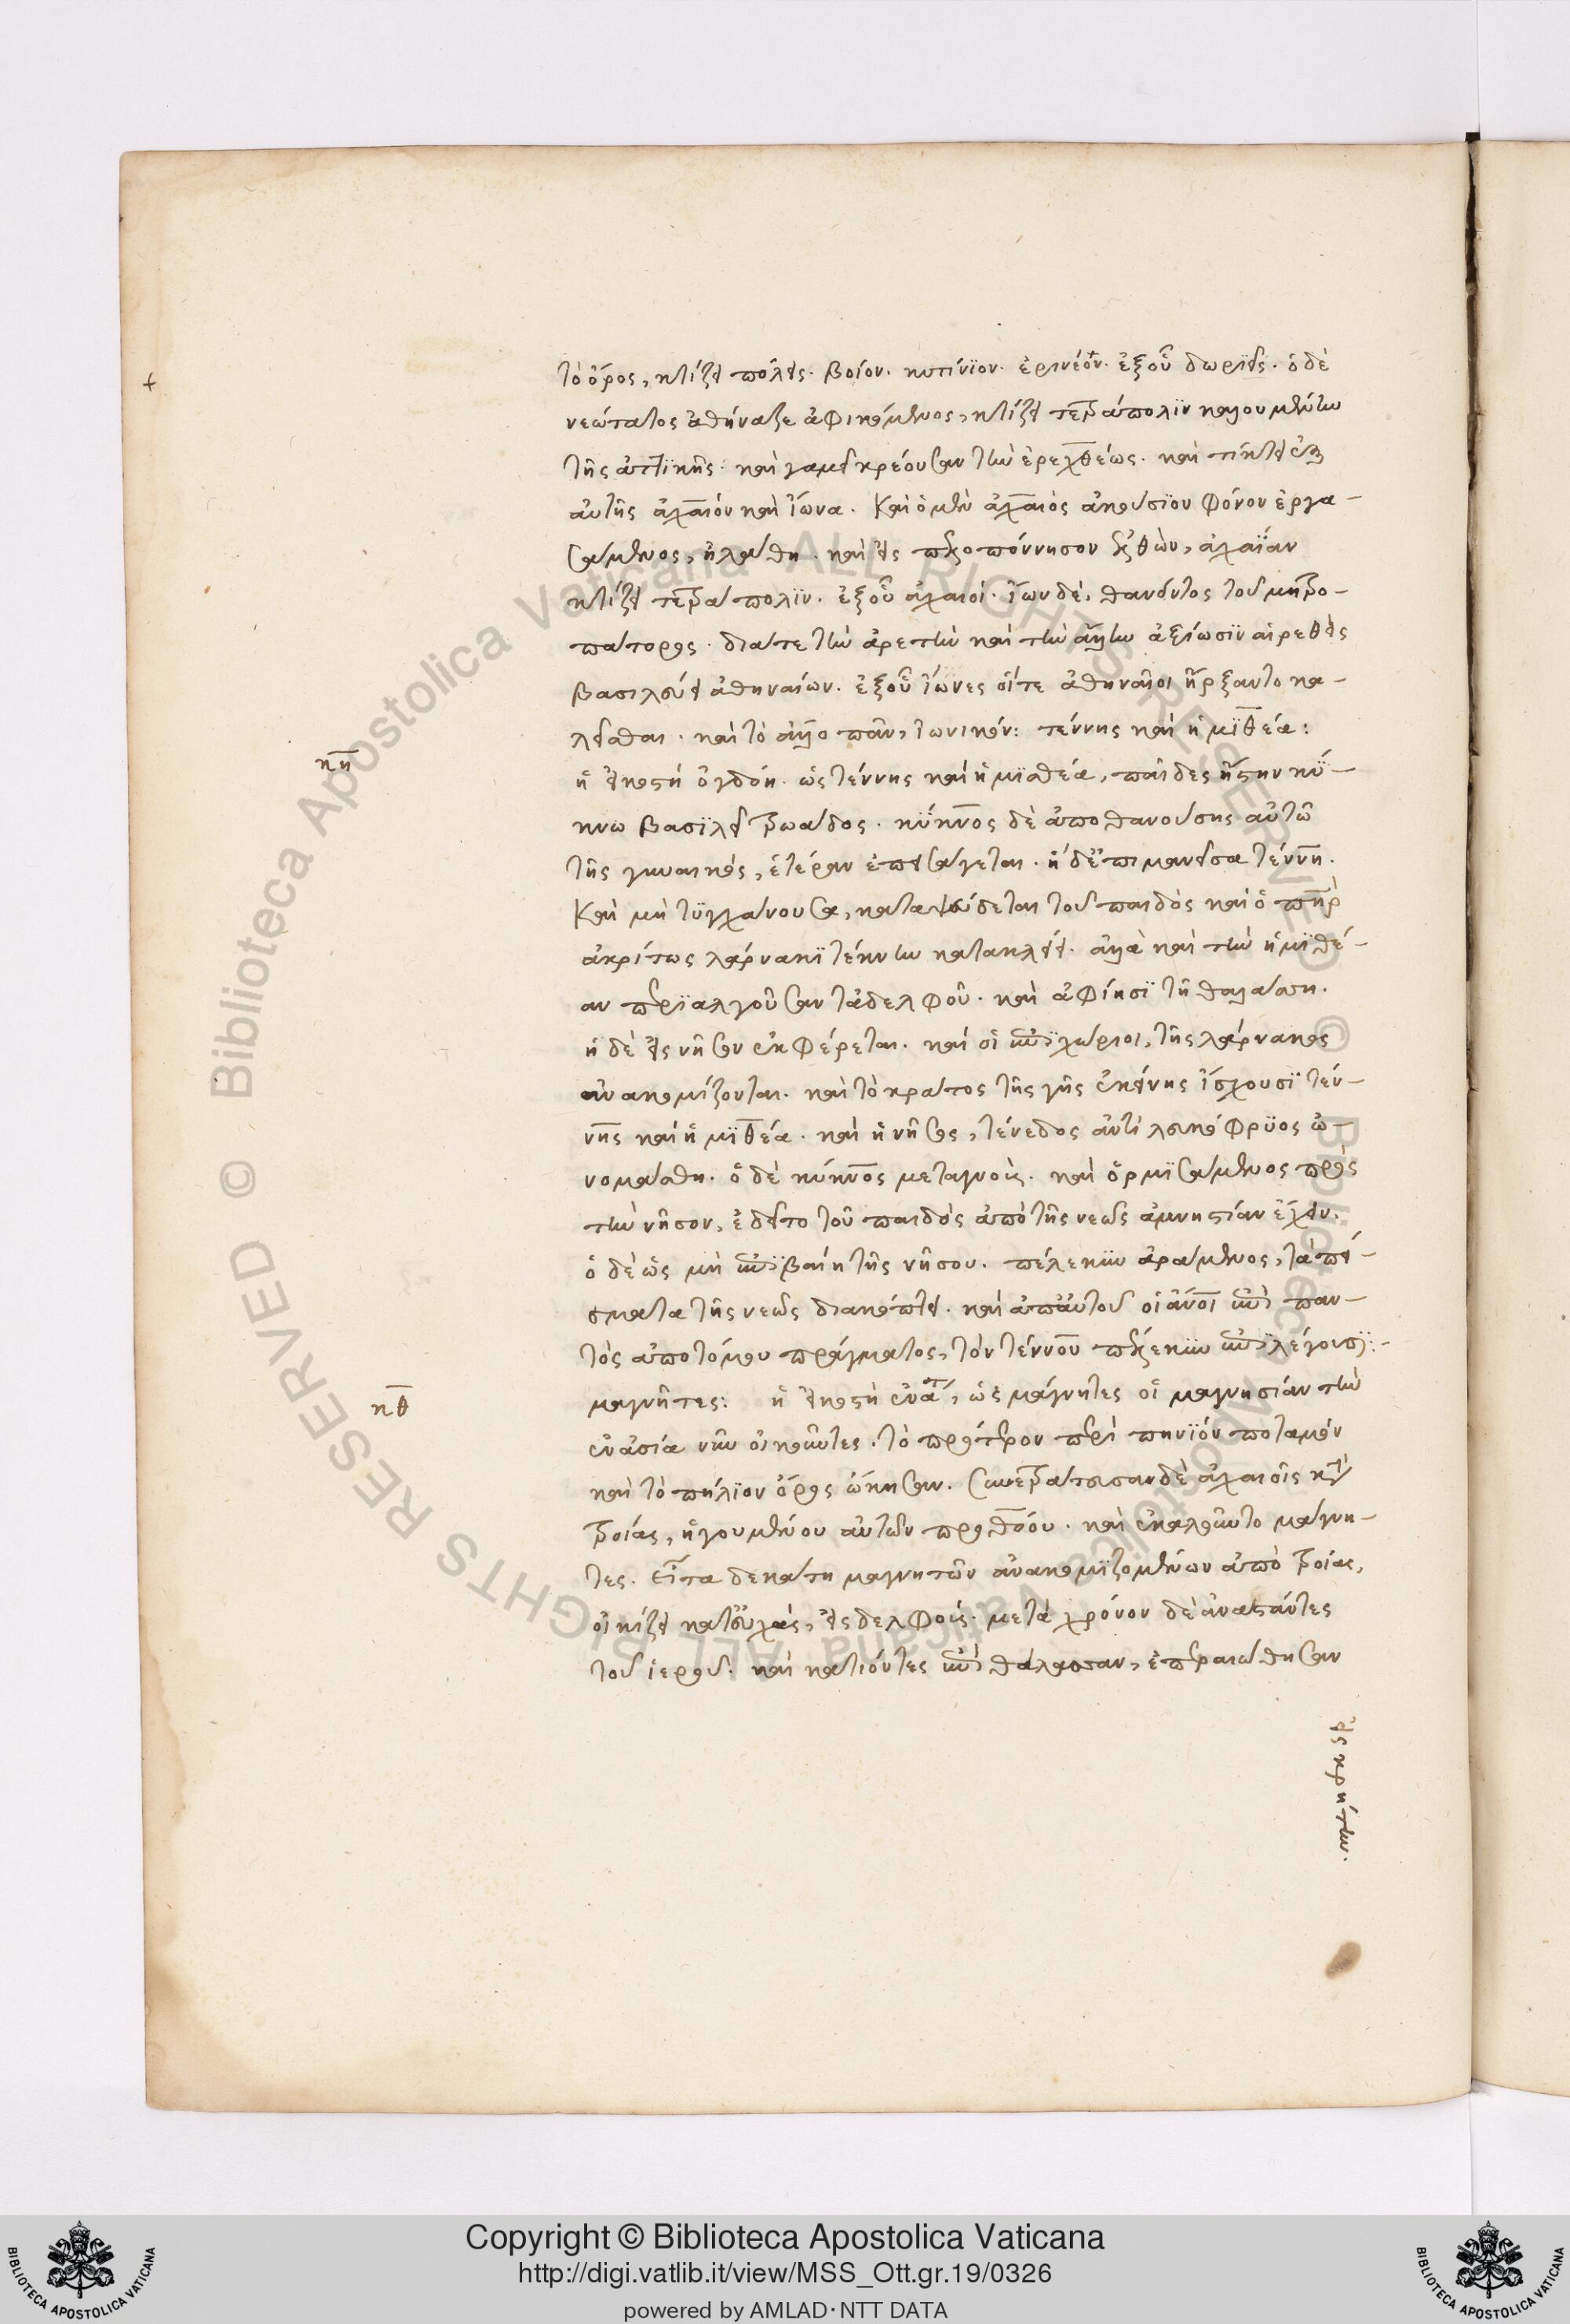 τὸ ὄρος, κτίζει πόλεις. βοίον. κυτίνϊον. ἐρινεόν. ἐξοῦ δωριεῖς. ὁ δὲ
νεώτατος ἀθήναζε ἀφικόμενος, κτίζει τετράπολϊν καλουμένην
τῆς ἀττϊκῆς. καὶ γαμεῖ κρέουσαν τὴν ἐρεχθέως. καὶ τίκτει ἐξ
αὐτῆς ἀχαιόν καὶ ἴωνα. Καὶ ὁ μὲν ἀχαιὸς ἀκούσϊον φόνον ἐργα-
σάμενος, ἠλάθη. καὶ εἰς πελοπόννησον ἐλθὼν, ἀχαΐαν
κτίζει τετράπολϊν. ἐξοῦ ἀχαιοί. ἴων δὲ, θανόντος τοῦ μητρο-
πάτορος. διά τε τὴν ἀρετὴν καὶ τὴν ἄλλην ἀξίωσϊν αἱρεθεὶς
βασιλεύει ἀθηναίων. ἐξοῦ ἴωνες οἵτε ἀθηναῖοι ἤρξαντο κα-
λεῖσθαι. καὶ τὸ ἄλλο πᾶν, ἰωνικόν: τέννης καὶ ἡμϊθέα:
κη
ἡ εἰκοστὴ ὀγδόη. ὡς τέννης καὶ ἡμϊθέα, παῖδες ἤστην κΰ-
κνω βασϊλεῖ τρωάδος. κΰκνος δὲ ἀποθανούσης αὐτῶ
τῆς γυναικός, ἑτέραν ἐπεισάγεται. ἡ δ' ἐπιμανεῖσα τέννη.
Καὶ μὴ τϋγχάνουσα, καταψεύδεται τοῦ παιδὸς καὶ ὁ πατὴρ
ἀκρίτως λάρνακϊ τέννην κατακλείει. ἀλλὰ καὶ τὴν ἡμϊθέ-
αν περϊαλγοῦσαν τἀδελφοῦ. καὶ ἀφίησϊ τῆ θαλάσση.
ἡ δὲ εἰς νῆσον ἐκφέρεται. καὶ οἱ ἐπϊχώριοι, τῆς λάρνακος
ἀνακομίζονται. καὶ τὸ κράτος τῆς γῆς ἐκείνης ἴσχουσϊ τέν-
νης καὶ ἡμϊθέα. καὶ ἡ νῆσος, τένεδος ἀντὶ λευκόφρϋος ὠ-
νομάσθη. ὁ δὲ κύκνος μεταγνοὺς. καὶ ὁρμϊσάμενος πρὸς
τὴν νῆσον, ἐδεῖτο τοῦ παιδὸς ἀπὸ τῆς νεὼς ἀμνηστίαν ἔχειν.
ὁ δὲ ὡς μὴ ἐπϊβαίη τῆς νήσου. πέλεκυν ἀράμενος, τὰ πεί-
σματα τῆς νεὼς διακόπτει. καὶ ἀπ' αὐτοῦ οἱ ἄνοι ἐπὶ παν-
τὸς ἀποτόμου πράγματος, τὸν τέννου πέλεκυν ἐπϊλέγουσϊ:-
κθ
μαγνῆτες: ἡ εἰκοστὴ ἐνάτη, ὡς μάγνητες οἱ μαγνησίαν τὴν
ἐν ἀσία νῦν οἰκοῦντες. τὸ πρότερον περὶ πηνϊόν ποταμόν
καὶ τὸ πήλϊον ὄρος ὤκησαν. συνεστράτευσαν δὲ ἀχαιοῖς κατὰ
τροίας, ἡγουμένου αὐτῶν προθόου. καὶ ἐκαλοῦντο μάγνη-
τες. εἶτα δεκάτη μαγνητῶν ἀνακομϊζομένων ἀπὸ τροίας,
οἰκίζει κατ' εὐχὰς, εἰς δελφούς. μετὰ χρόνον δὲ ἀναστάντες
τοῦ ἱεροῦ. καὶ κατιόντες ἐπὶ θάλασσαν, ἐπεραιώθησαν
εἰς κρήτην.